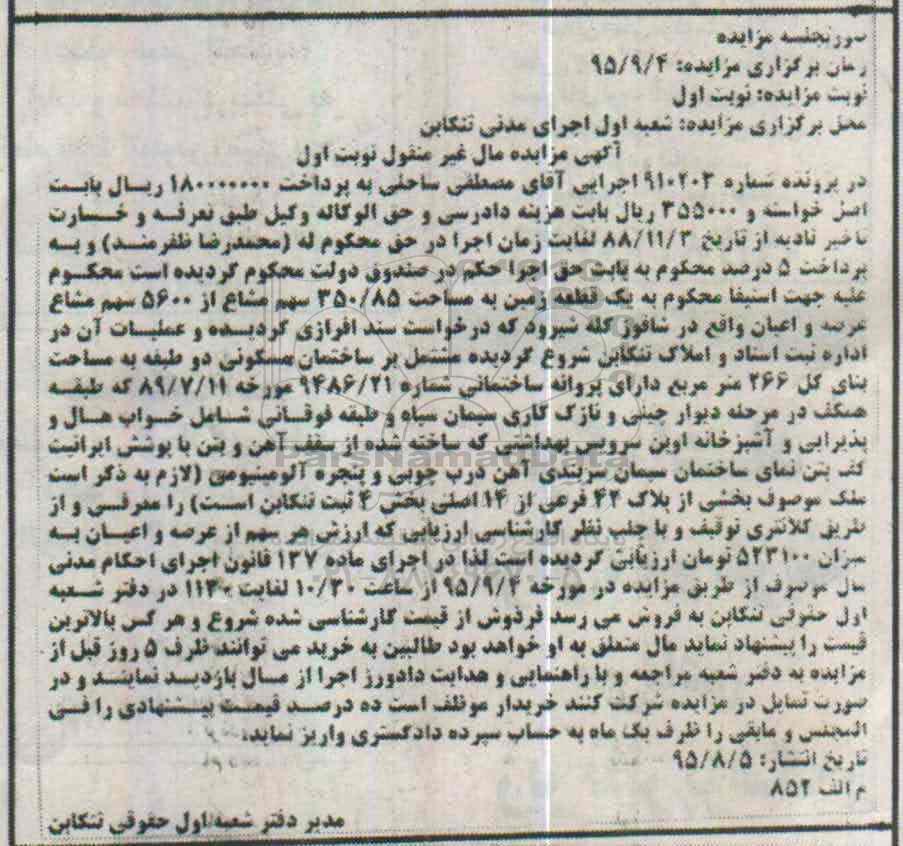 صورتجلسه مزایده
زمان برگزاری مزایده: ۹۵/۹/۴
نوبت مزایده: نوبت اول
محل برگزاری مزایده: شعبه اول اجرای مدنی تنکابن
آگهی مزایده مال غیر منقول نوبت اول
در پرونده شماره ۹۱۰۲۰۳ اجرایی آقای مصطفی ساحلی به پرداخت ۱۸۰۰۰۰۰۰۰ ریال بابت
اصل خواسته و ۳۵۵۰۰۰ ریال بابت هزینه دادرسی و حق الوکاله وکیل طبق تعرفه و خسارت
تاخیر تادیه از تاریخ ۸۸/۱۱/۳ لغایت زمان اجرا در حق محکوم له (محمدرضا ظفرمند) و به
پرداخت ۵ درصد محکوم به بابت حق اجرا حکم در صندوق دولت محکوم گردیده است محکوم
علیه جهت استیفا محکوم به یک قطعه زمین به مساحت ۳۵۰/۸۵ سهم مشاع از ۵۶۰۰ سهم مشاع
عرصه و اعیان واقع در شافوژ کله شیرود که درخواست سند افرازی گردیده و عملیات آن در
اداره ثبت اسناد و املاک تنکابن شروع گردیده مشتمل بر ساختمان مسکونی دو طبقه به مساحت
بنای کل ۲۶۶ متر مربع دارای پروانه ساختمانی شماره ۹۴۸۶/۲۱ مورخه ۸۹/۷/۱۱ که طبقه
همکف در مرحله دیوار چینی و نازک کاری سیمان سیاه و طبقه فوقانی شامل خواب هال و
پذیرایی و آشپزخانه اوپن سرویس بهداشتی که ساخته شده از سقف آهن و بتن با پوشش ایرانیت
کف بتن نمای ساختمان سیمان سربندی آهن درب چوبی و پنجره آلومینیومی (لازم به ذکر است
ملک موصوف بخشی از پلاک ۴۴ فرعی از ۱۴ اصلی بخش ۴ ثبت تنکابن است) را معرفی و از
طریق کلانتری توقیف و با جلب نظر کارشناسی ارزیابی که ارزش هر سهم از عرصه و اعیان به
میزان ۵۲۳۱۰۰ تومان ارزیابی گردیده است لذا در اجرای ماده ۱۳۷ قانون اجرای احکام مدنی
مال موصوف از طریق مزایده در مورخه ۹۵/۹/۴ از ساعت ۱۰/۳۰ لغایت ۱۱۳۰ در دفتر شعبه
اول حقوقی تنکابن به فروش می رسد فردوش از قیمت کارشناسی شده شروع و هر کس بالاترین
قیمت را پیشنهاد نماید مال متعلق به او خواهد بود طالبین به خرید می توانند ظرف ۵ روز قبل از
مزایده به دفتر شعبه مراجعه و با راهنمایی و هدایت دادورز اجرا از مال بازدید نمایند و در
صورت تمایل در مزایده شرکت کنند خریدار موظف است ده درصد قیمت پیشنهادی را فی
المجلس و مابقی را ظرف یک ماه به حساب سپرده دادگستری واریز نماید.
تاریخ انتشار: ۹۵/۸/۵
م الف ۸۵۲
مدیر دفتر شعبه اول حقوقی تنکابن
ParsNamadData